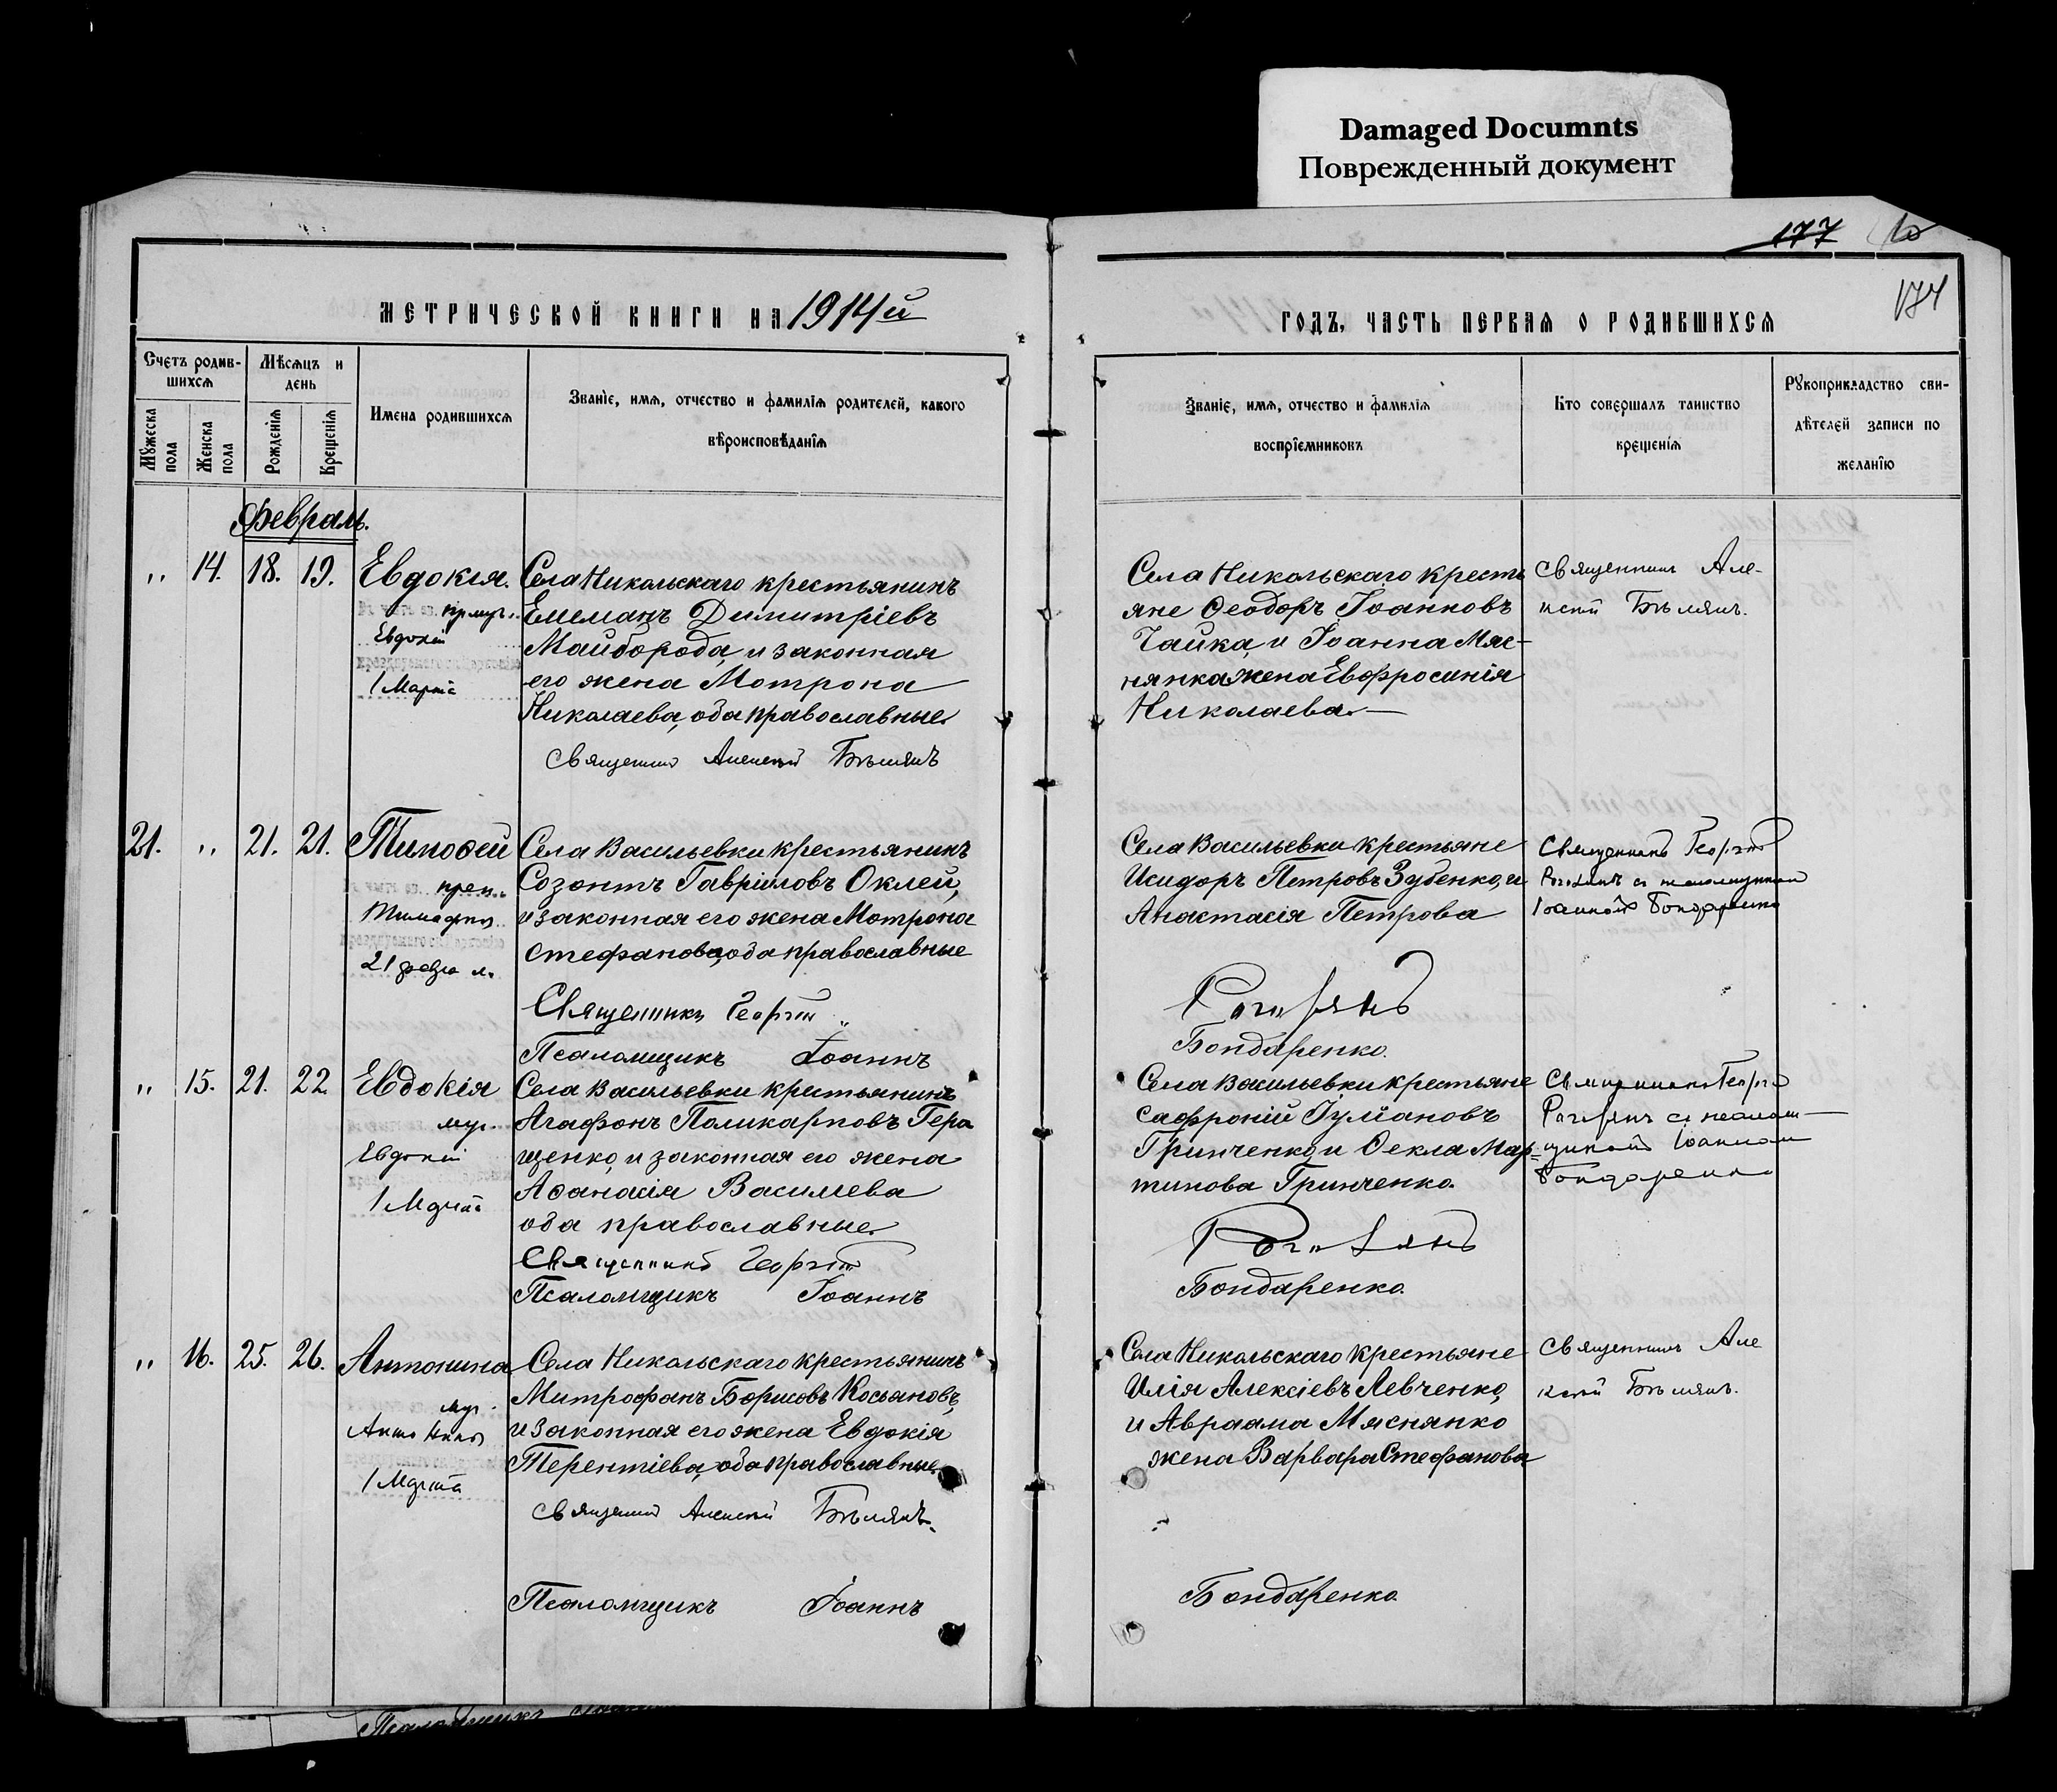 Damaged Documnts
Поврежденный документ
177
174
МЕТРИЧЕСКОЙ КНИГИ НА 1914й
ГОДЪ, ЧАСТЬ ПЕРВАЯ О РОДИВШИХСЯ
Счетъ родив-
шихся
Мѣсяцъ и
день
Мужеска
пола
Женска
пола
Рожденія
Крещенія
Имена родившихся
Званіе, имя, отчество и фамилія родителей, какого
вѣроисповѣданія
Званіе, имя, отчество и фамилія
воспріемниковъ
Кто совершалъ таинство
крещенія
Рукоприкладство сви-
дѣтелей записи по
желанію
Февраль.
„ 14. 18. 19. Евдокія.
Евдокіи
1 Марта
Села Никольскаго крестьянинъ
Емеліанъ Димитріевъ
Майборода, и законная
его жена Мотрона
Николаева, оба православные.
Священникъ Алексѣй Бѣляевъ
Села Никольскаго кресть
яне Ѳеодоръ Іоанновъ
Чайка, и Іоанна Мяс-
нянка жена Евфросинія
Николаева.
Священникъ Але-
ксѣй
21. „ 21. 21. Тимоѳей
преп.
21 февр
Села Васильевки крестьянинъ
Созонтъ Гавріиловъ Оклей,
и законная его жена Мотрона
Стефанова, оба православные
Священникъ Георгій
Псаломщикъ Іоаннъ
Села Васильевки крестьяне
Исидоръ Петровъ Зубенко, и
Анастасія Петрова
Бондаренко.
Священникъ Георгій
съ псаломщикомъ
Іоанномъ Бондаренко
„ 15. 21. 22. Евдокія
муч.
Евдокіи
1 Марта
Села Васильевки крестьянинъ
Агафонъ Поликарповъ Гера
щенко, и законная его жена
Аѳанасія Василиева
оба православные.
Священникъ Георгій
Псаломщикъ Іоаннъ
Села Васильевки крестьяне
Сафроній Іуліановъ
Гринченко, и Ѳекла Мар-
тинова Гринченко.
Бондаренко.
Священникъ Георгій
съ псалом-
щикомъ Іоанномъ
Бондаренко
„ 16. 25. 26. Антонина
муч.
1 Марта
Села Никольскаго крестьянинъ
Митрофанъ Борисовъ Косьяновъ,
и законная его жена Евдокія
Терентіева, оба православные.
Священникъ Алексѣй
Псаломщикъ Іоаннъ
Села Никольскаго крестьяне
Илія Алексіевъ Левченко,
и Авраама Мяснянко
жена Варвара Стефанова
Бондаренко.
Священникъ Але
ксѣй